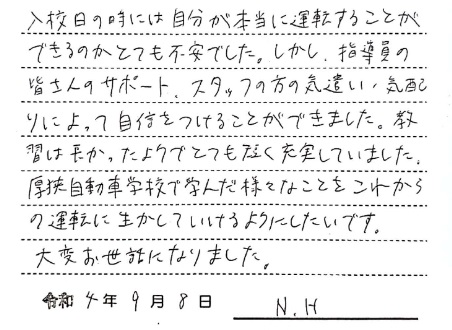 入校日の時には自分が本当に運転することが
できるのかとても不安でした。しかし、指導員の
皆さんのサポート、スタッフの方の気遣い・気配
りによって自信をつけることができました。教
習は長かったようでとても短く充実していました。
厚狭自動車学校で学んだ様々なことをこれから
の運転に生かしていけるようにしたいです。
大変お世話になりました。
令和4年9月8日 N.H